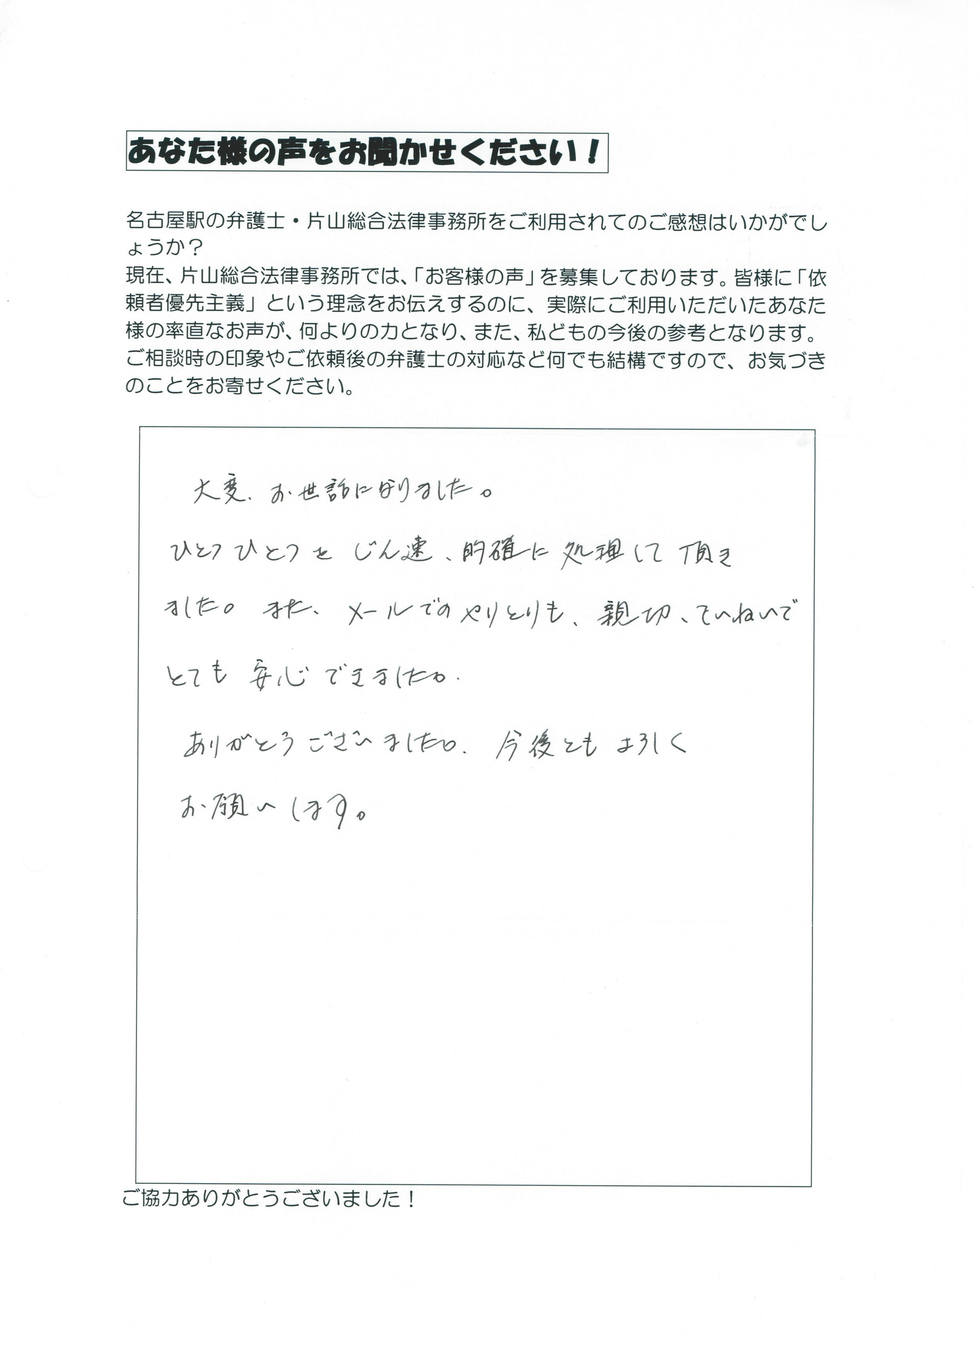 あなた様の声をお聞かせください！
名古屋駅の弁護士・片山総合法律事務所をご利用されてのご感想はいかがでし
ょうか？
現在、片山総合法律事務所では、「お客様の声」を募集しております。皆様に「依
頼者優先主義」という理念をお伝えするのに、実際にご利用いただいたあなた
様の率直なお声が、何よりの力となり、また、私どもの今後の参考となります。
ご相談時の印象やご依頼後の弁護士の対応など何でも結構ですので、お気づき
のことをお寄せください。
大変、お世話になりました。
ひとつひとつをじん速、的確に処理して頂き
ました。また、メールでのやりとりも、親切、ていねいで
とても安心できました。
ありがとうございました。今後ともよろしく
お願いします。
ご協力ありがとうございました！